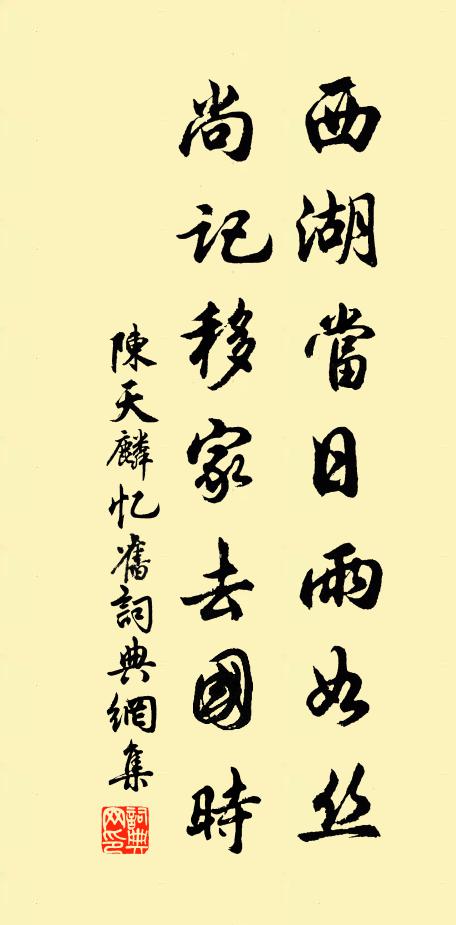 西湖當日雨如丝
尚记移家去國時
陳天麟忆舊詞典網集
詞典网印